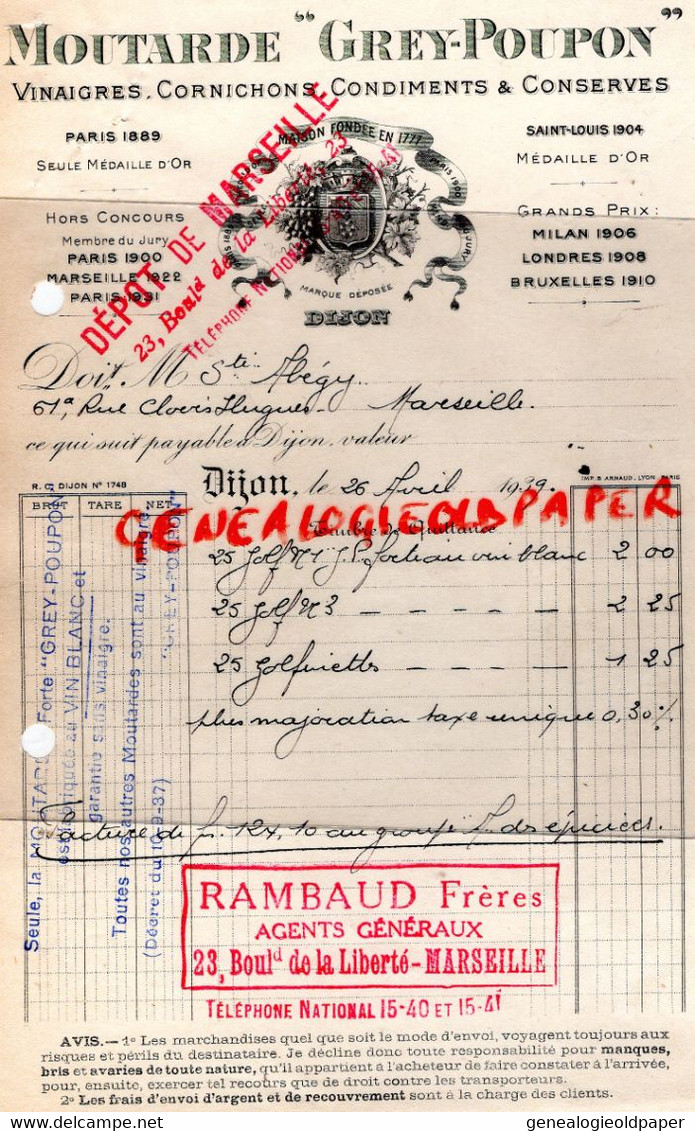 MOUTARDE "GREY-POUPON"
VINAIGRES, CORNICHONS, CONDIMENTS & CONSERVES
PARIS 1889
SEULE MÉDAILLE D'OR
HORS CONCOURS
Membre du Jury
PARIS 1900
MARSEILLE 1922
PARIS 1931
MAISON FONDÉE EN 1777
MARQUE DÉPOSÉE
DIJON
SAINT-LOUIS 1904
MÉDAILLE D'OR
GRANDS PRIX:
MILAN 1906
LONDRES 1908
BRUXELLES 1910
DÉPOT DE MARSEILLE
23, Boulᵈ de la Liberté, 23
TÉLÉPHONE NATIONAL
Doit, M Sté Abégy
61ᵃ, Rue Clovis Hugues - Marseille.
ce qui suit payable à Dijon, valeur
R. C. DIJON Nº 1748
Dijon, le 26 Avril 1939.
IMP. B. ARNAUD, LYON, PARIS
BRUT TARE NET
GENEALOGIEOLDPAPER
Timbre de Quittance
25 Golf Nº1 vin blanc 2 00
25 Golf Nº3 - - - - - 2 25
25 Golfinettes - - - - 1 25
plus majoration taxe unique 0,30%
Facture de fr. au groupt A. des épiciers.
Seule, la MOUTARDE Forte "GREY-POUPON"
est fabriquée au VIN BLANC et
garantie sans vinaigre.
Toutes nos autres Moutardes sont au vinaigre
(Décret du 10-9-37) "GREY-POUPON"
RAMBAUD Frères
AGENTS GÉNÉRAUX
23, Boulᵈ de la Liberté-MARSEILLE
TÉLÉPHONE NATIONAL 15-40 ET 15-41
AVIS.— 1º Les marchandises quel que soit le mode d'envoi, voyagent toujours aux
risques et périls du destinataire. Je décline donc toute responsabilité pour manques,
bris et avaries de toute nature, qu'il appartient à l'acheteur de faire constater à l'arrivée,
pour, ensuite, exercer tel recours que de droit contre les transporteurs.
2º Les frais d'envoi d'argent et de recouvrement sont à la charge des clients.
www.delcampe.net
genealogieoldpaper